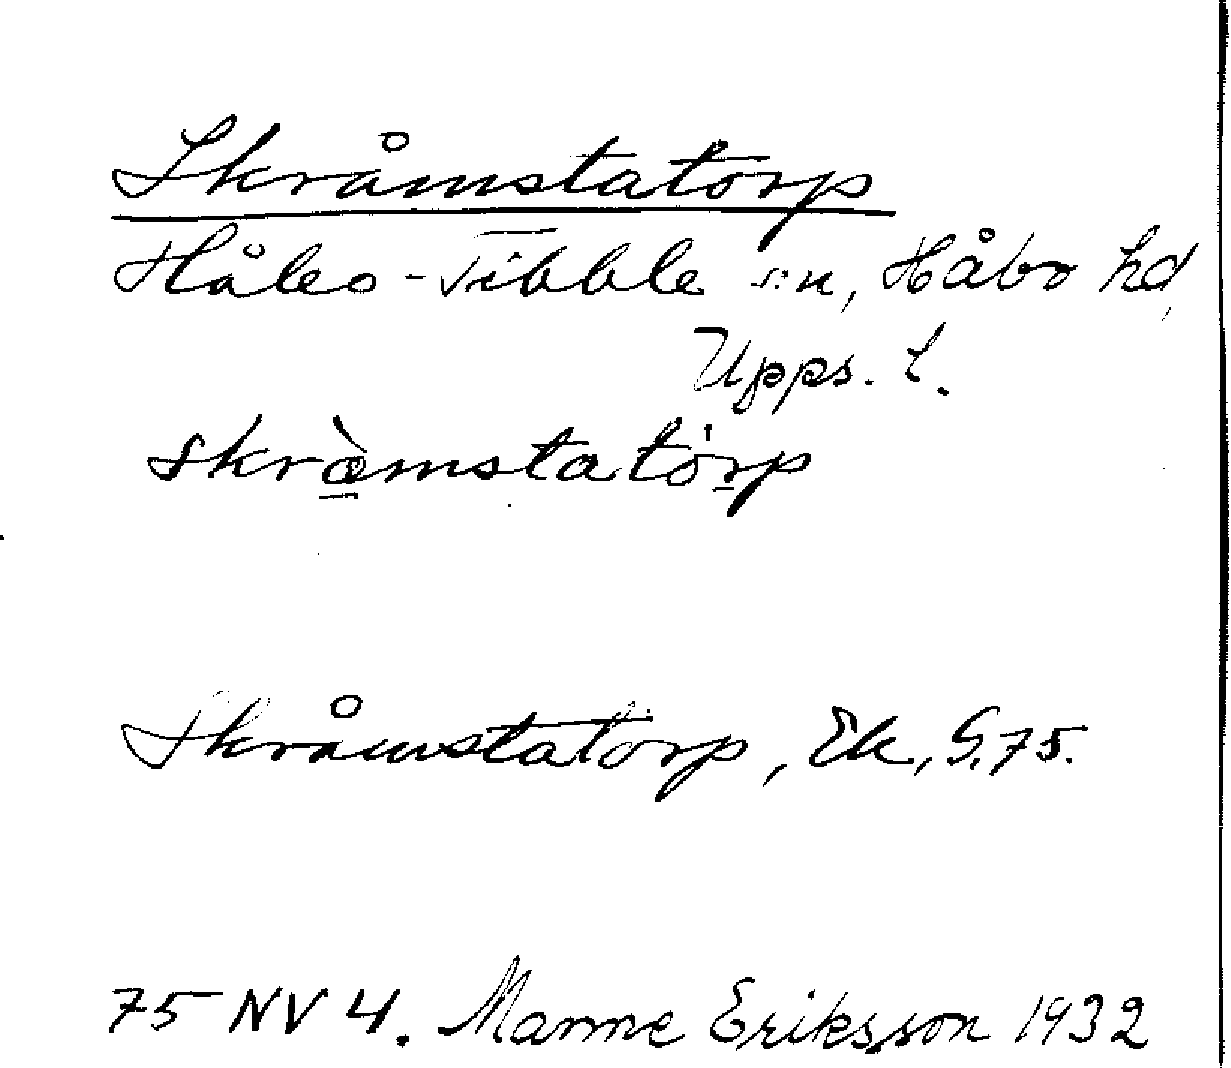 Skråmstatorp
Håbo-Tibble s:n, Håbo hd,
Upps. l.
skræ̀mstatórp
Skråmstatorp, Ek, G. 75.
75 NV 4. Manne Eriksson 1932